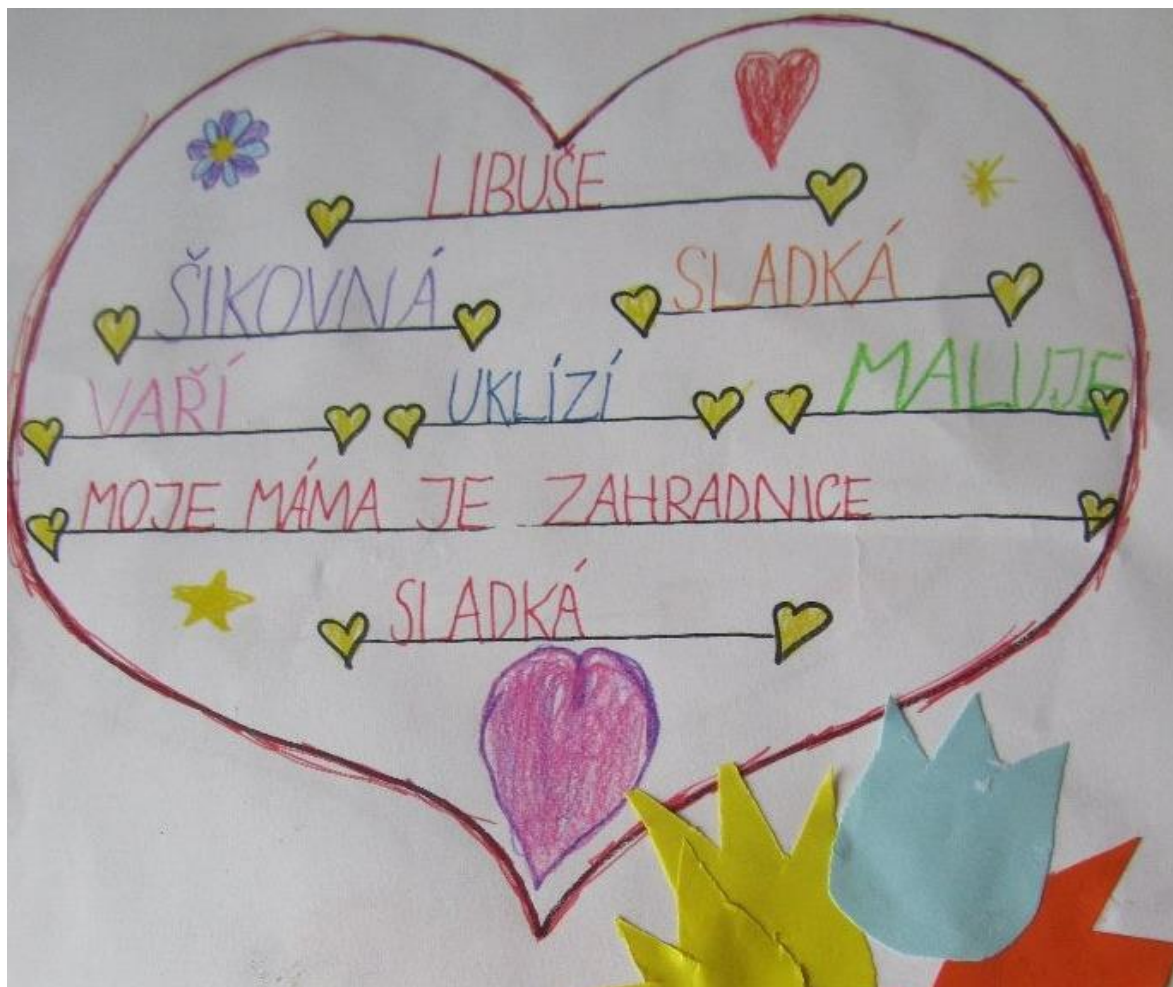 LIBUŠE
ŠIKOVNÁ SLADKÁ
VAŘÍ UKLÍZÍ MALUJE
MOJE MÁMA JE ZAHRADNICE
SLADKÁ